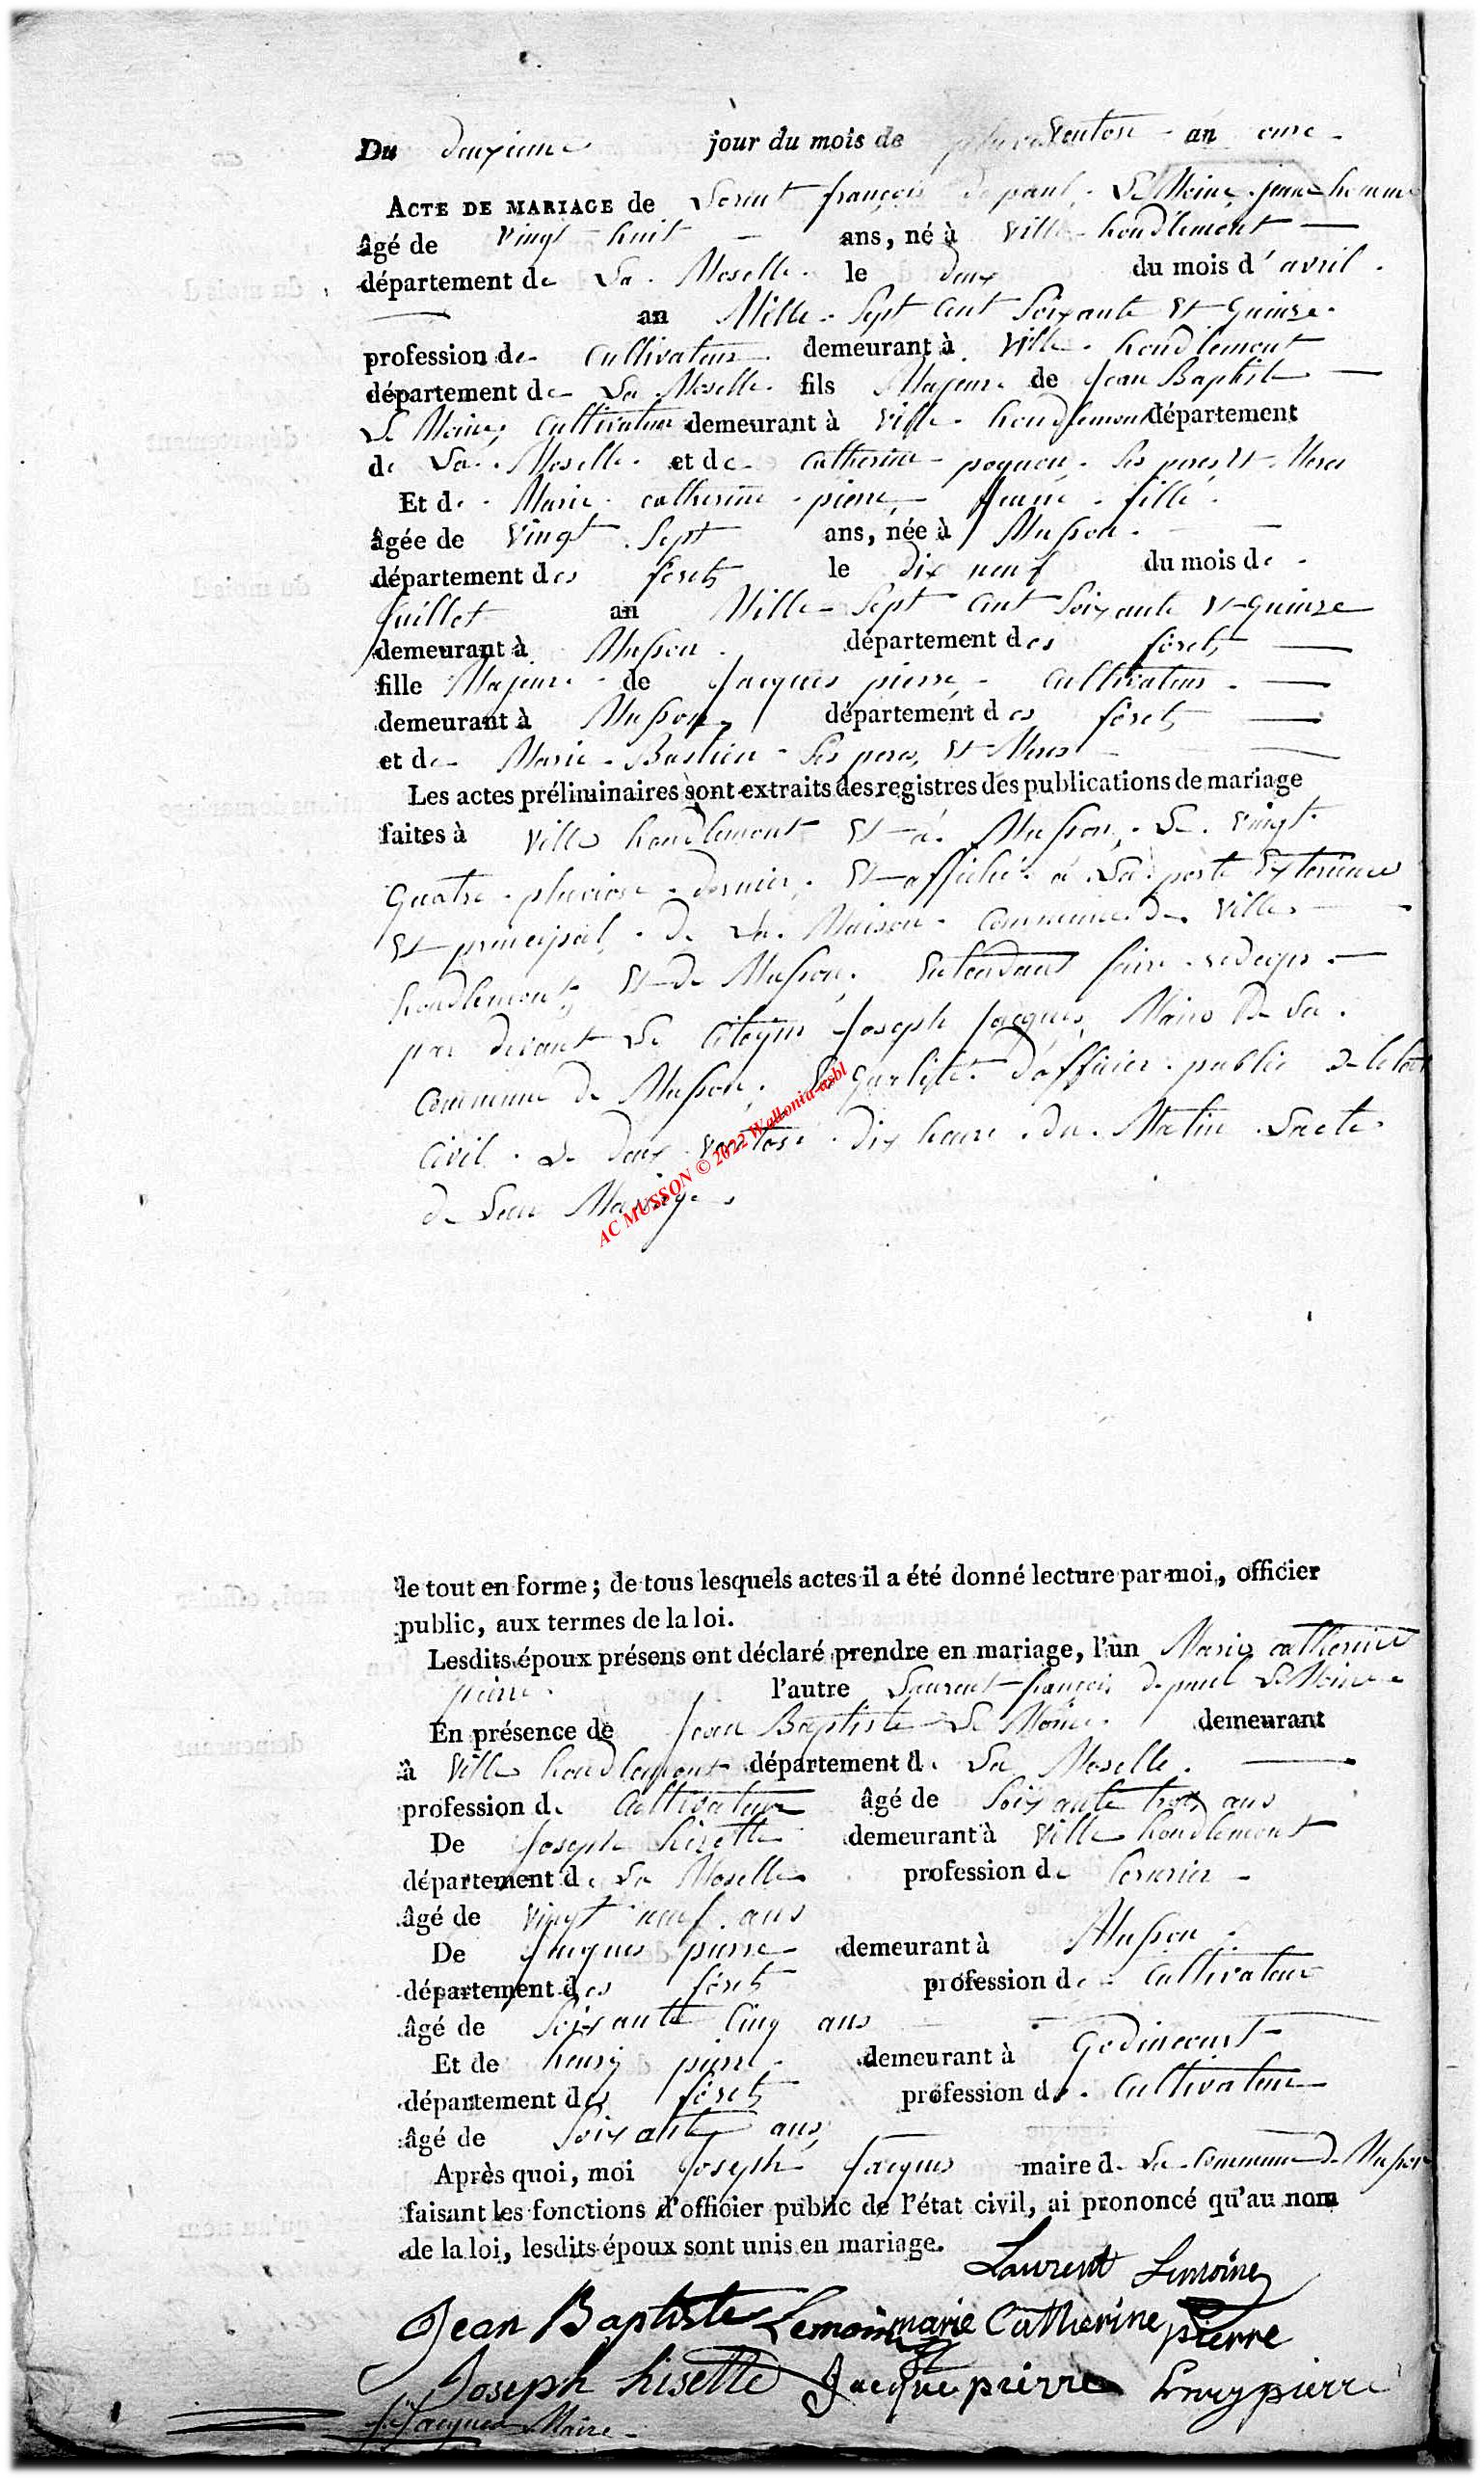 Du deuxieme jour du mois de Ventose an onze
ACTE DE MARIAGE de Lorent françois de paul Le Moine jeune homme
âgé de vingt huit ans, né à Ville houdlemont
département de La Moselle le deux du mois d'avril
an Mille Sept Cent Soixante et quinze
profession de Cultivateur demeurant à Ville houdlemont
département de La Moselle fils Majeur de Jean Baptiste
Le Moine, Cultivateur demeurant à Ville houdlemont département
de La Moselle et de catherine ses peres et Meres
Et de Marie catherine pierre, Jeune fille
âgée de Vingt Sept ans, née à Musson
département des forets le Dix neuf du mois de
Juillet an Mille Sept Cent Soixante et quinze
demeurant à Musson département des forets
fille Majeure de Jacques pierre, Cultivateur
demeurant à Musson, département des forets
et de Marie Bastien ses peres et Meres
Les actes préliminaires sont extraits des registres des publications de mariage
faites à Ville houdlemont et à Musson, Le vingt
quatre pluviose dernier, et affiché à La porte Exterieure
et principal de La Maison Commune de Ville
houdlemont, et de Musson, Entendant faire rediger
par devant Le Citoyen Joseph Jacques, Maire De La
Commune de Musson, qualité d'officier public de letat
Civil Le Deux Ventose dix heure du Matin Lacte
de Leur Mariage
AC MUSSON © 2022 Wallonia-asbl
le tout en forme; de tous lesquels actes il a été donné lecture par moi, officier
public, aux termes de la loi.
Lesdits époux présens ont déclaré prendre en mariage, l'un Marie catherine
pierre l'autre Laurent françois de paul Le Moine
En présence de Jean Baptiste Le Moine demeurant
à Ville houdlemont département de La Moselle
profession de Cultivateur âgé de Soixante trois ans
De Joseph hizette demeurant à Ville houdlemont
département de La Moselle profession de
âgé de vingt neuf ans
De Jacques pierre demeurant à Musson
département des forets profession de Cultivateur
âgé de Soixante Cinq ans
Et de henry pierre demeurant à Godincourt
département des forets profession de Cultivateur
âgé de Soixante ans
Après quoi, moi Joseph Jacques maire de La Commune de Musson
faisant les fonctions d'officier public de l'état civil, ai prononcé qu'au nom
de la loi, lesdits époux sont unis en mariage.
Laurent Lemoine
Jean Baptiste Lemoine marie Catherine pierre
Joseph hisette Jacque pierre henry pierre
J. Jacques Maire